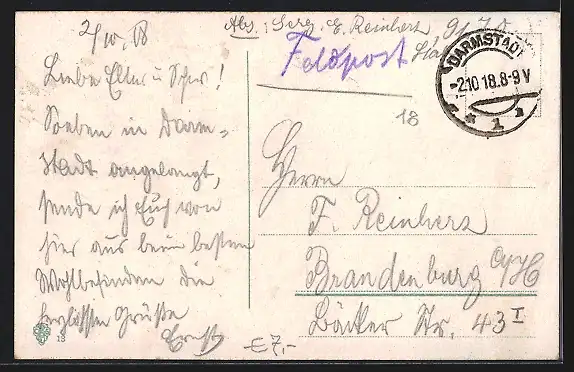 2/10.18
Liebe Eltern u Schw!
Soeben in Darm=
stadt angelangt,
sende ich Euch von
hier aus beim besten
Wohlbefinden die
herzlichsten Grüße
Ernst
Abs: Serg. E. Reinherz, 9/
Feldpost
DARMSTADT
-2.10 18.8-9 V
* 1
18
Herrn
F. Reinherz
Brandenburg a/H
Bäcker Str. 43 I
€ 7,-
13